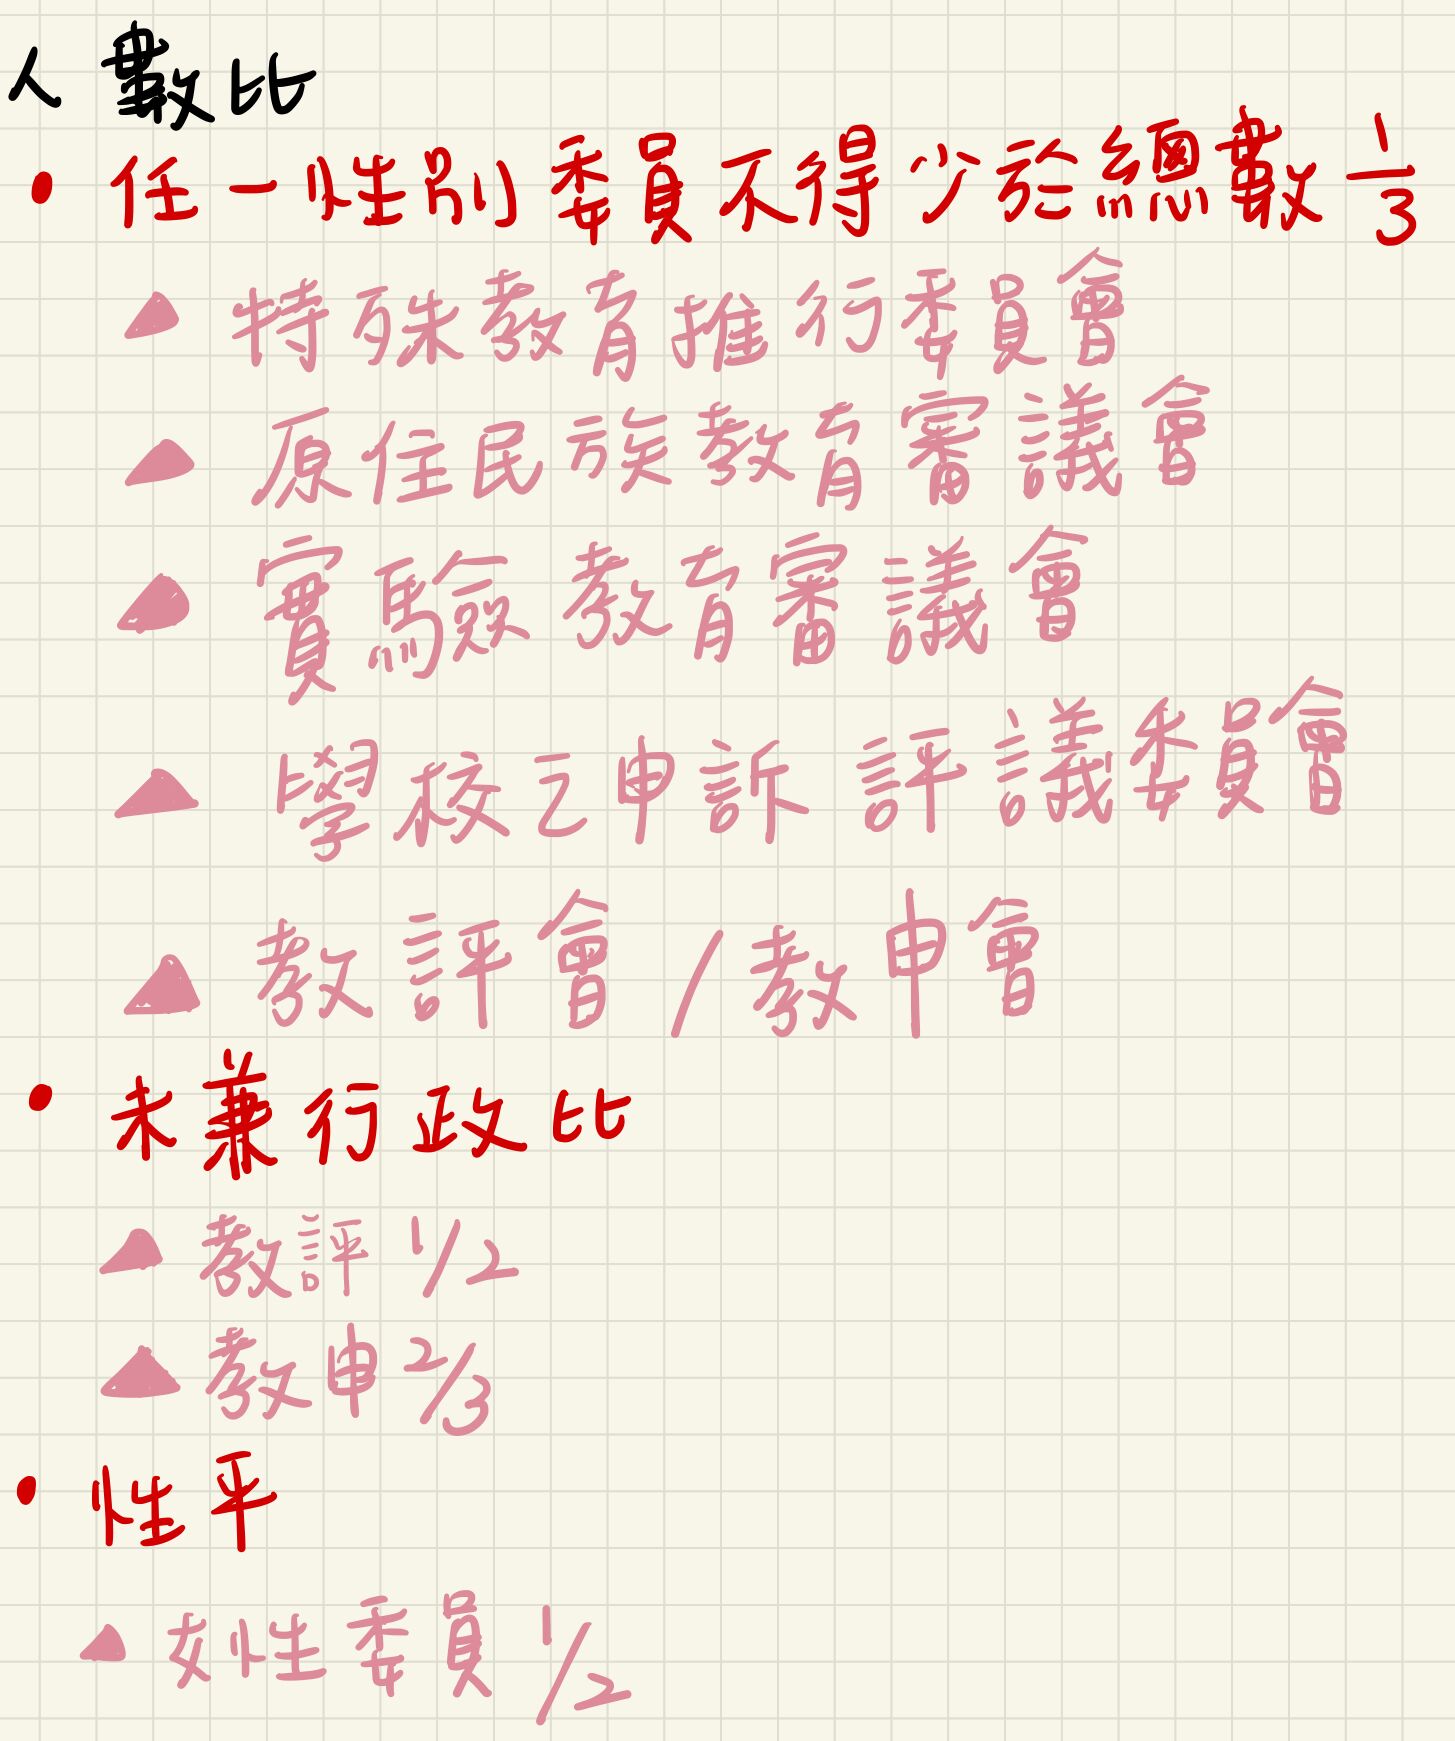 人數比
• 任一性別委員不得少於總數 1/3
▲ 特殊教育推行委員會
▲ 原住民族教育審議會
▲ 實驗教育審議會
▲ 學校之申訴評議委員會
▲ 教評會/教申會
• 未兼行政比
▲ 教評 1/2
▲ 教申 2/3
• 性平
▲ 女性委員 1/2